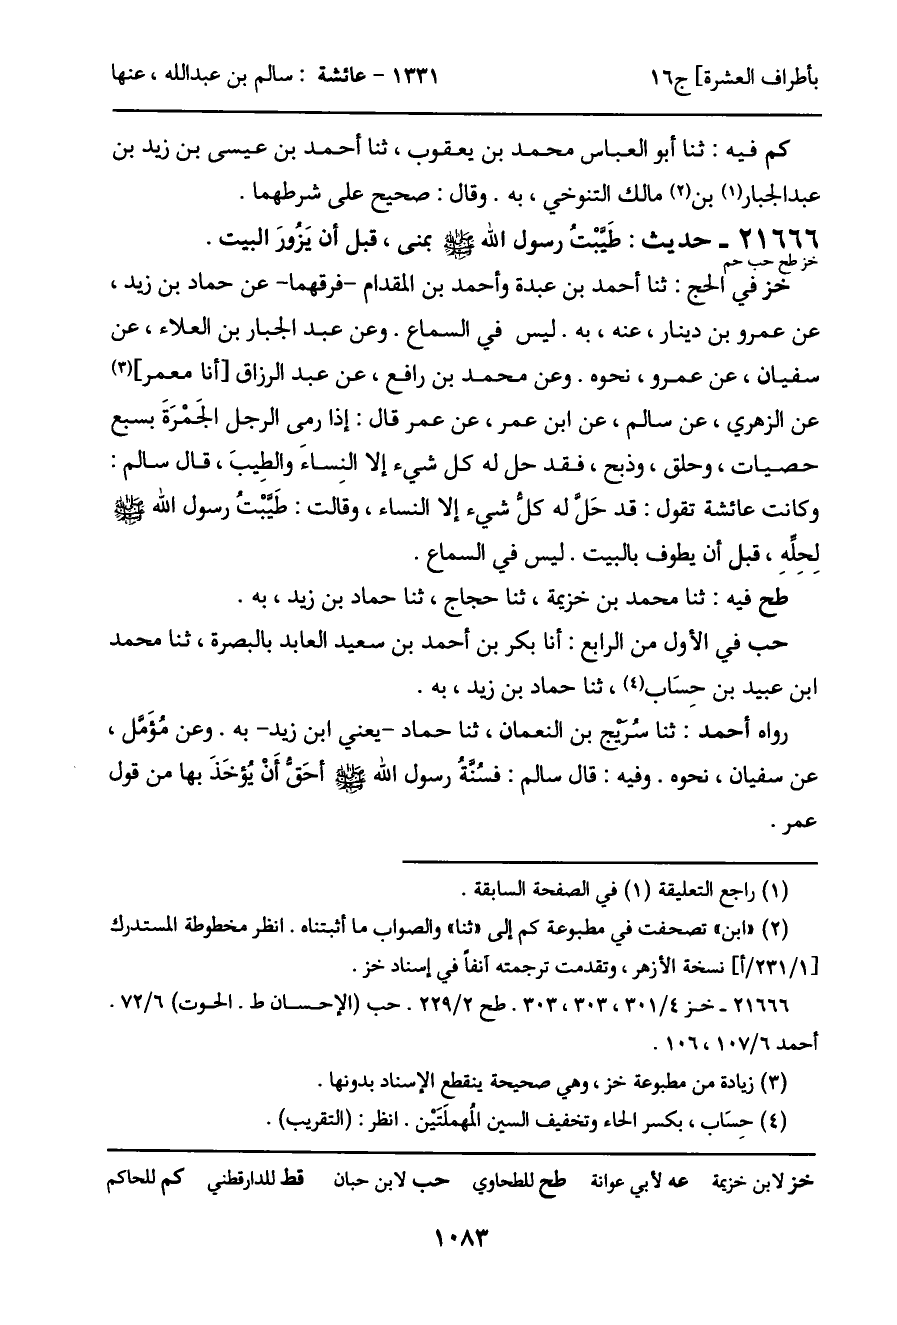 بأطراف العشرة] ج١٦ ١٣٣١ - عائشة : سالم بن عبدالله ، عنها
كم فيه : ثنا أبو العباس محمد بن يعقوب ، ثنا أحمد بن عيسى بن زيد بن
عبدالجبار(١) بن(٢) مالك التنوخي ، به . وقال : صحيح على شرطهما .
٢١٦٦٦ ـ حديث : طَيَّبْتُ رسول الله ﷺ بمنى ، قبل أن يَزُورَ البيت .
خز طح حب حم
خز في الحج : ثنا أحمد بن عبدة وأحمد بن المقدام -فرقهما- عن حماد بن زيد ،
عن عمرو بن دينار ، عنه ، به . ليس في السماع . وعن عبد الجبار بن العلاء ، عن
سفيان ، عن عمرو ، نحوه . وعن محمد بن رافع ، عن عبد الرزاق [أنا معمر](٣)
عن الزهري ، عن سالم ، عن ابن عمر ، عن عمر قال : إذا رمى الرجل الجَمْرَةَ بسبع
حصيات ، وحلق ، وذبح ، فقد حل له كل شيء إلا النِساءَ والطِيبَ ، قال سالم :
وكانت عائشة تقول : قد حَلَّ له كلُّ شيء إلا النساء ، وقالت : طَيَّبْتُ رسول الله ﷺ
لِحِلِّهِ ، قبل أن يطوف بالبيت . ليس في السماع .
طح فيه : ثنا محمد بن خزيمة ، ثنا حجاج ، ثنا حماد بن زيد ، به .
حب في الأول من الرابع : أنا بكر بن أحمد بن سعيد العابد بالبصرة ، ثنا محمد
ابن عبيد بن حِسَاب(٤) ، ثنا حماد بن زيد ، به .
رواه أحمد : ثنا سُرَيْج بن النعمان ، ثنا حماد -يعني ابن زيد- به . وعن مُؤَمَّل ،
عن سفيان ، نحوه . وفيه : قال سالم : فسُنَّةُ رسول الله ﷺ أحَقُّ أَنْ يُؤخَذَ بها من قول
عمر .
(١) راجع التعليقة (١) في الصفحة السابقة .
(٢) «ابن» تصحفت في مطبوعة كم إلى «ثنا» والصواب ما أثبتناه . انظر مخطوطة المستدرك
[١/٢٣١/أ] نسخة الأزهر ، وتقدمت ترجمته آنفاً في إسناد خز .
٢١٦٦٦ ـ خز ٣٠١/٤ ، ٣٠٣ ، ٣٠٣ . طح ٢٢٩/٢ . حب (الإحسان ط . الحوت) ٧٢/٦ .
أحمد ١٠٧/٦ ، ١٠٦ .
(٣) زيادة من مطبوعة خز ، وهي صحيحة ينقطع الإسناد بدونها .
(٤) حِسَاب ، بكسر الحاء وتخفيف السين المُهملَتَيْن . انظر : (التقريب) .
خز لابن خزيمة عه لأبي عوانة طح للطحاوي حب لابن حبان قط للدارقطني كم للحاكم
١٠٨٣